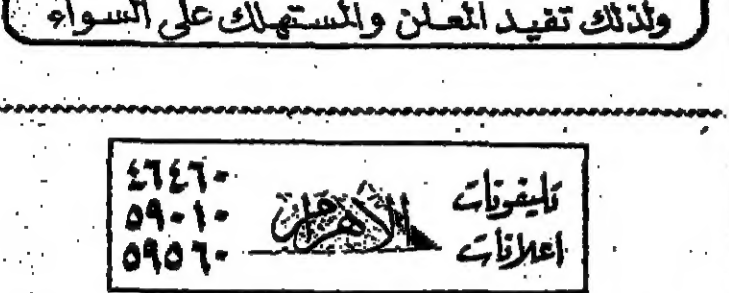 ولذلك تفيد المعلن والمستهلك على السواء
تليفونات
اعلانات
الأهرام
٤٦٤٦٠
٥٩٠١٠
٥٩٥٦٠